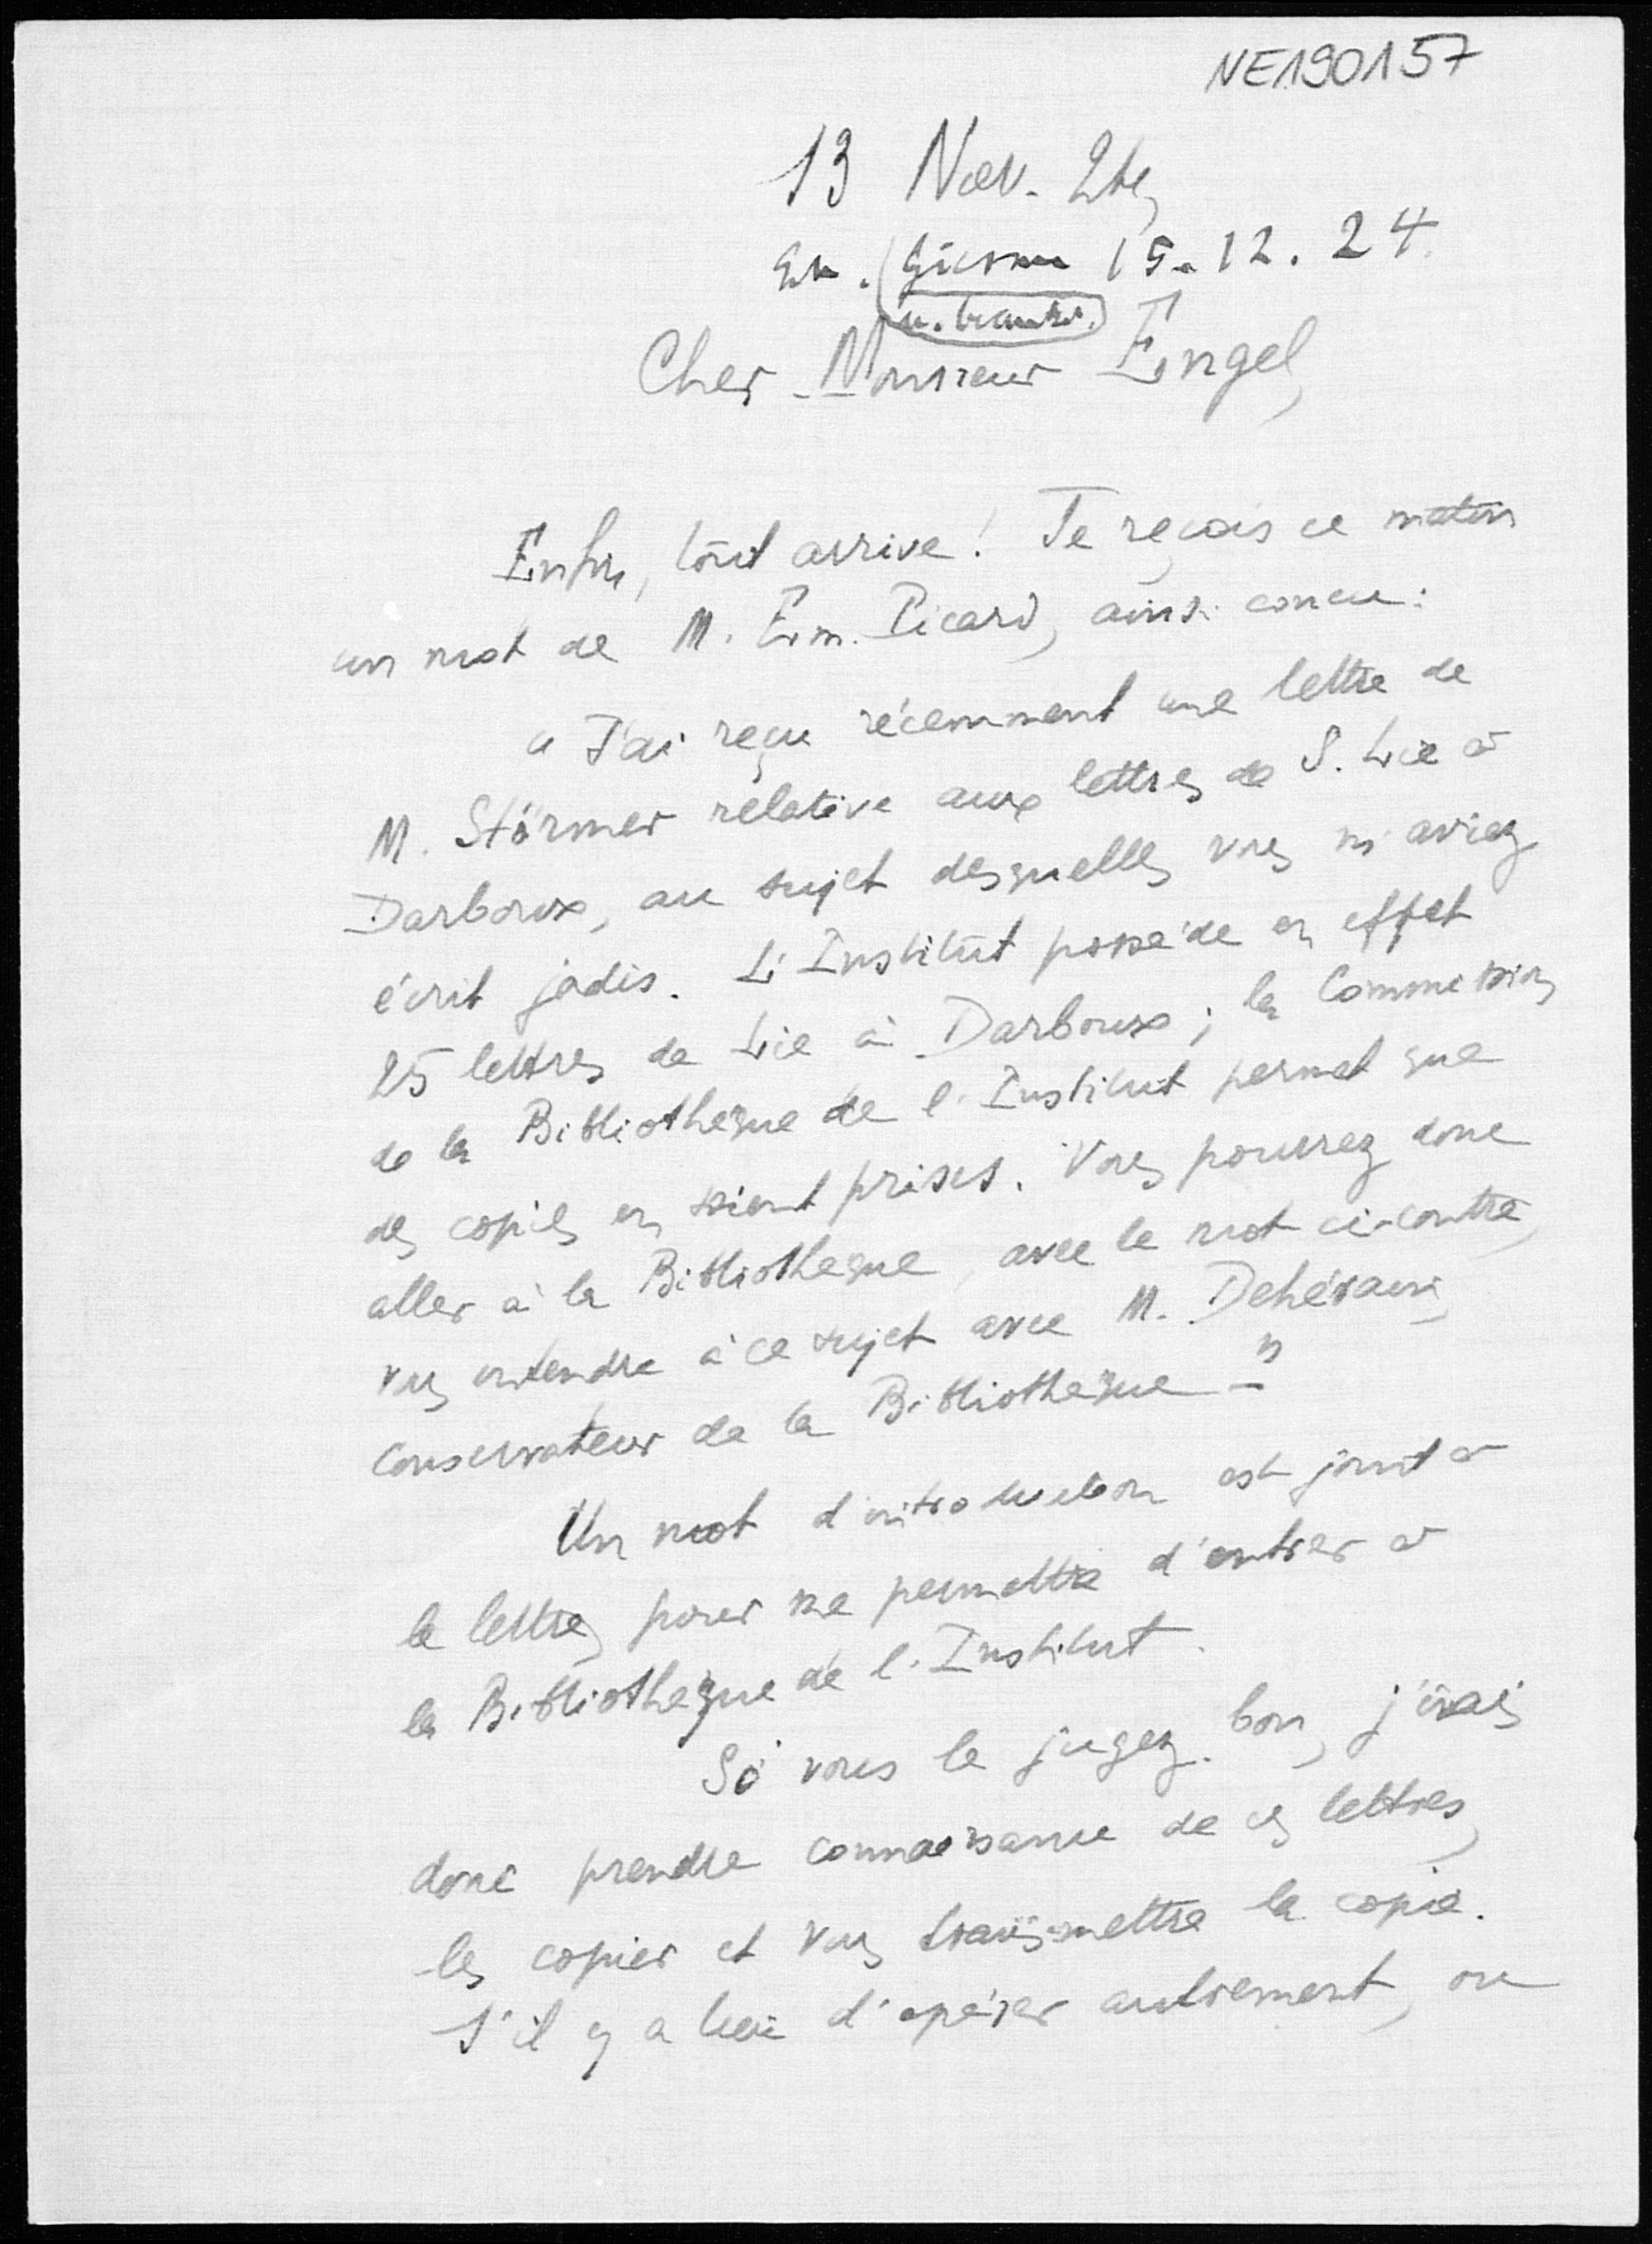 NE190157
13 Nov. 24
15.12.24
u. beantw.
Cher Monsieur Engel,
Enfin, tout arrive! Je reçois ce matin
un mot de M. Em. Picard, ainsi concu:
« J'ai reçu récemment une lettre de
M. Störmer relative aux lettres de S. Lie à
Darboux, au sujet desquelles vous m'aviez
écrit jadis. L'Institut possède en effet
25 lettres de Lie à Darboux; la Commission
de la Bibliothèque de l'Institut permet que
des copies en soient prises. Vous pourrez donc
aller à la Bibliothèque, avec le mot ci-contre,
vous entendre à ce sujet avec M. Dehérain,
Conservateur de la Bibliothèque – »
Un mot d'introduction est joint à
la lettre, pour me permettre d'entrer à
la Bibliothèque de l'Institut.
Si vous le jugez bon, j'irais
donc prendre connaissance de ces lettres,
les copier et vous transmettre la copie.
S'il y a lieu d'opérer autrement, ou